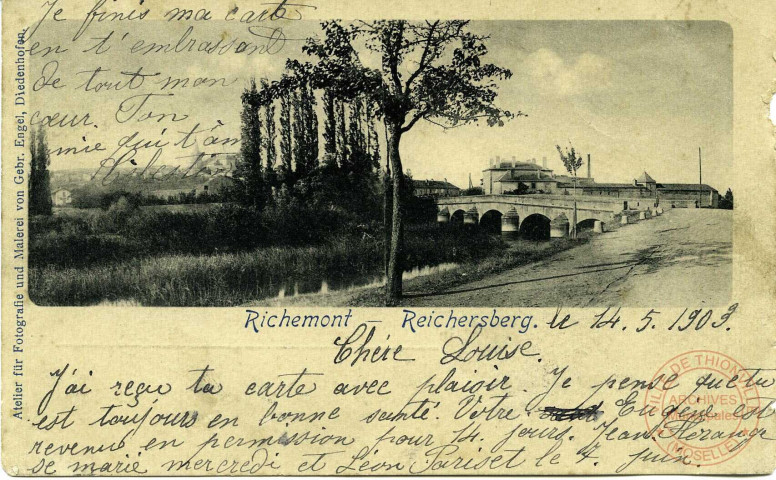 Richemont – Reichersberg. le 14. 5. 1903.
Chère Louise.
J'ai reçu ta carte avec plaisir. Je pense que tu
est toujours en bonne santé. Votre Eugène est
revenue en permission pour 14. jours. Jean
se marie mercredi et Léon Pariset le 4. juin.
Je finis ma carte
en t'embrassant
de tout mon
cœur. Ton
mie qui t'aime
Atelier für Fotografie und Malerei von Gebr. Engel, Diedenhofen.
VILLE DE THIONVILLE
ARCHIVES
Municipales
MOSELLE